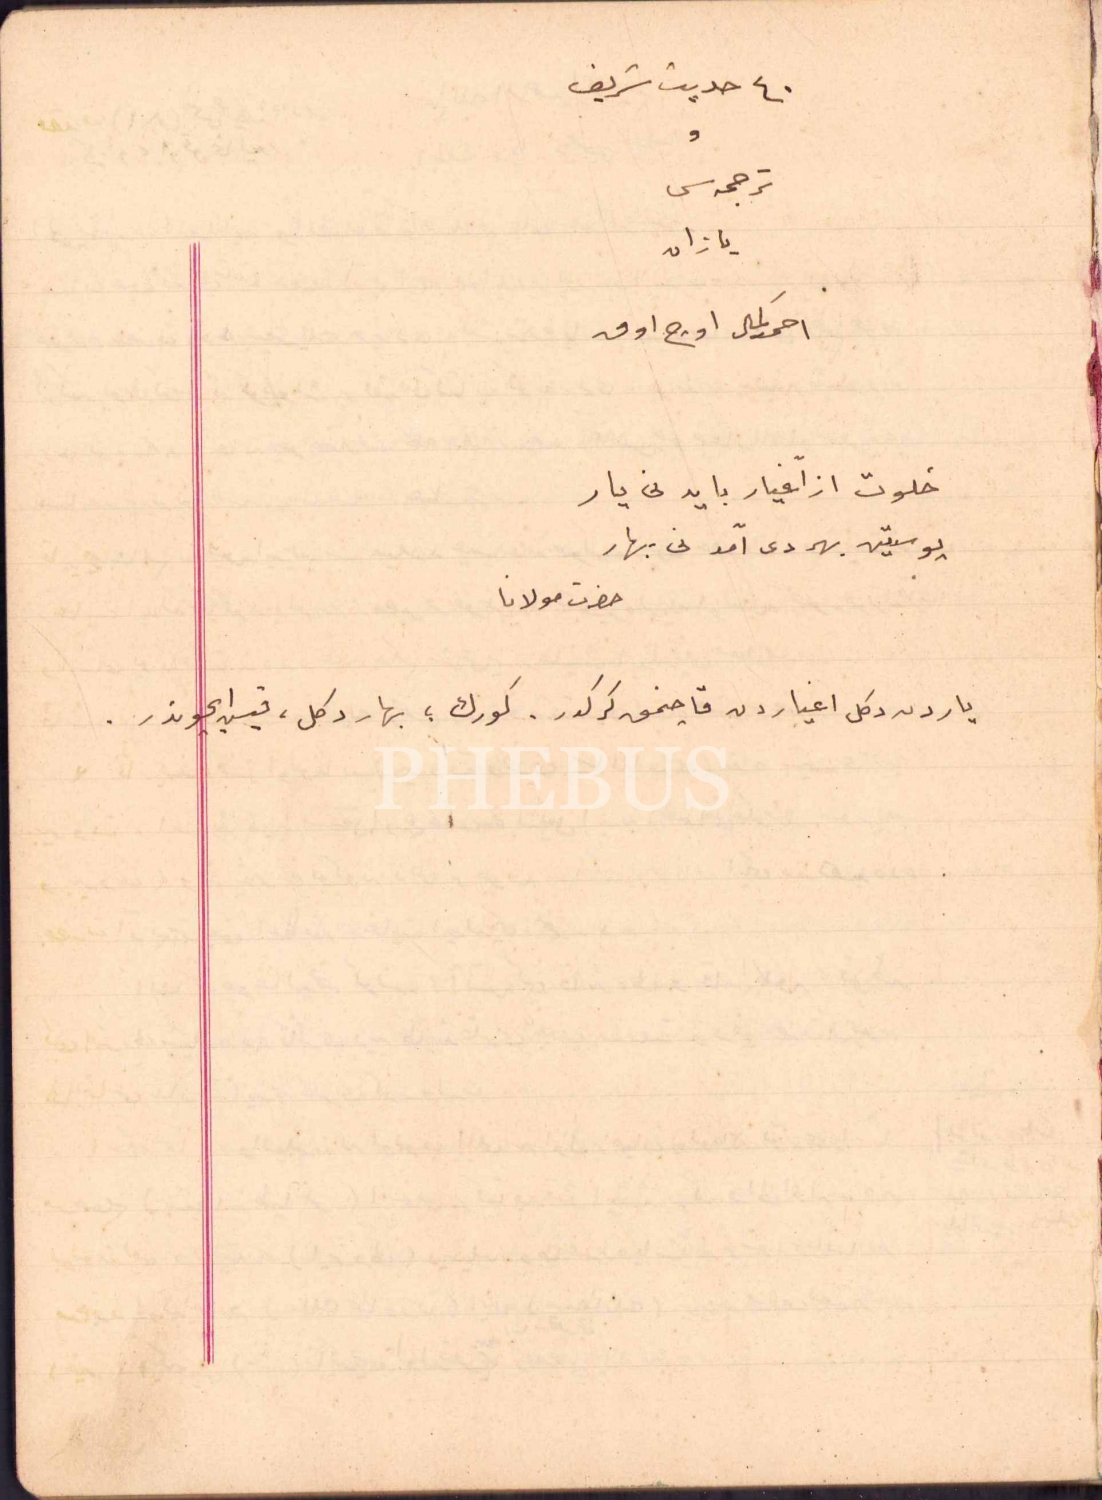 ٤٠ حديث شريف
و
ترجمه سى
يازان
احمد كمال اوچ اوق
خلوت از اغيار بايد نى ز يار
پوستين بهر دى آمد نى بهار
حضرت مولانا
ياردن دكل اغياردن قاچنمق كركدر . كورك ؛ بهار دكل ، قيش ايچوندر .
PHEBUS